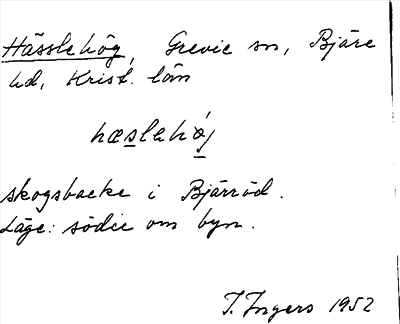 Hässlehög, Grevie sn, Bjäre
hd, Krist. län
hæslehǿj
skogsbacke i Bjärröd.
Läge: söder om byn.
I. Ingers 1952